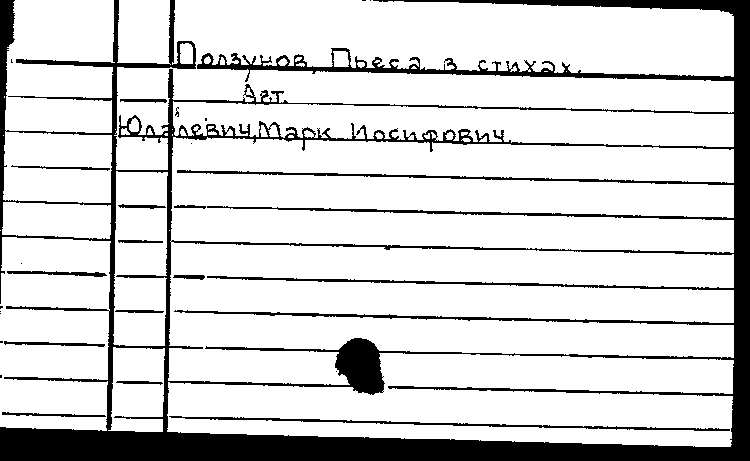 Ползунов. Пьеса в стихах.
Авт.
Юдалевич, Марк Иосифович